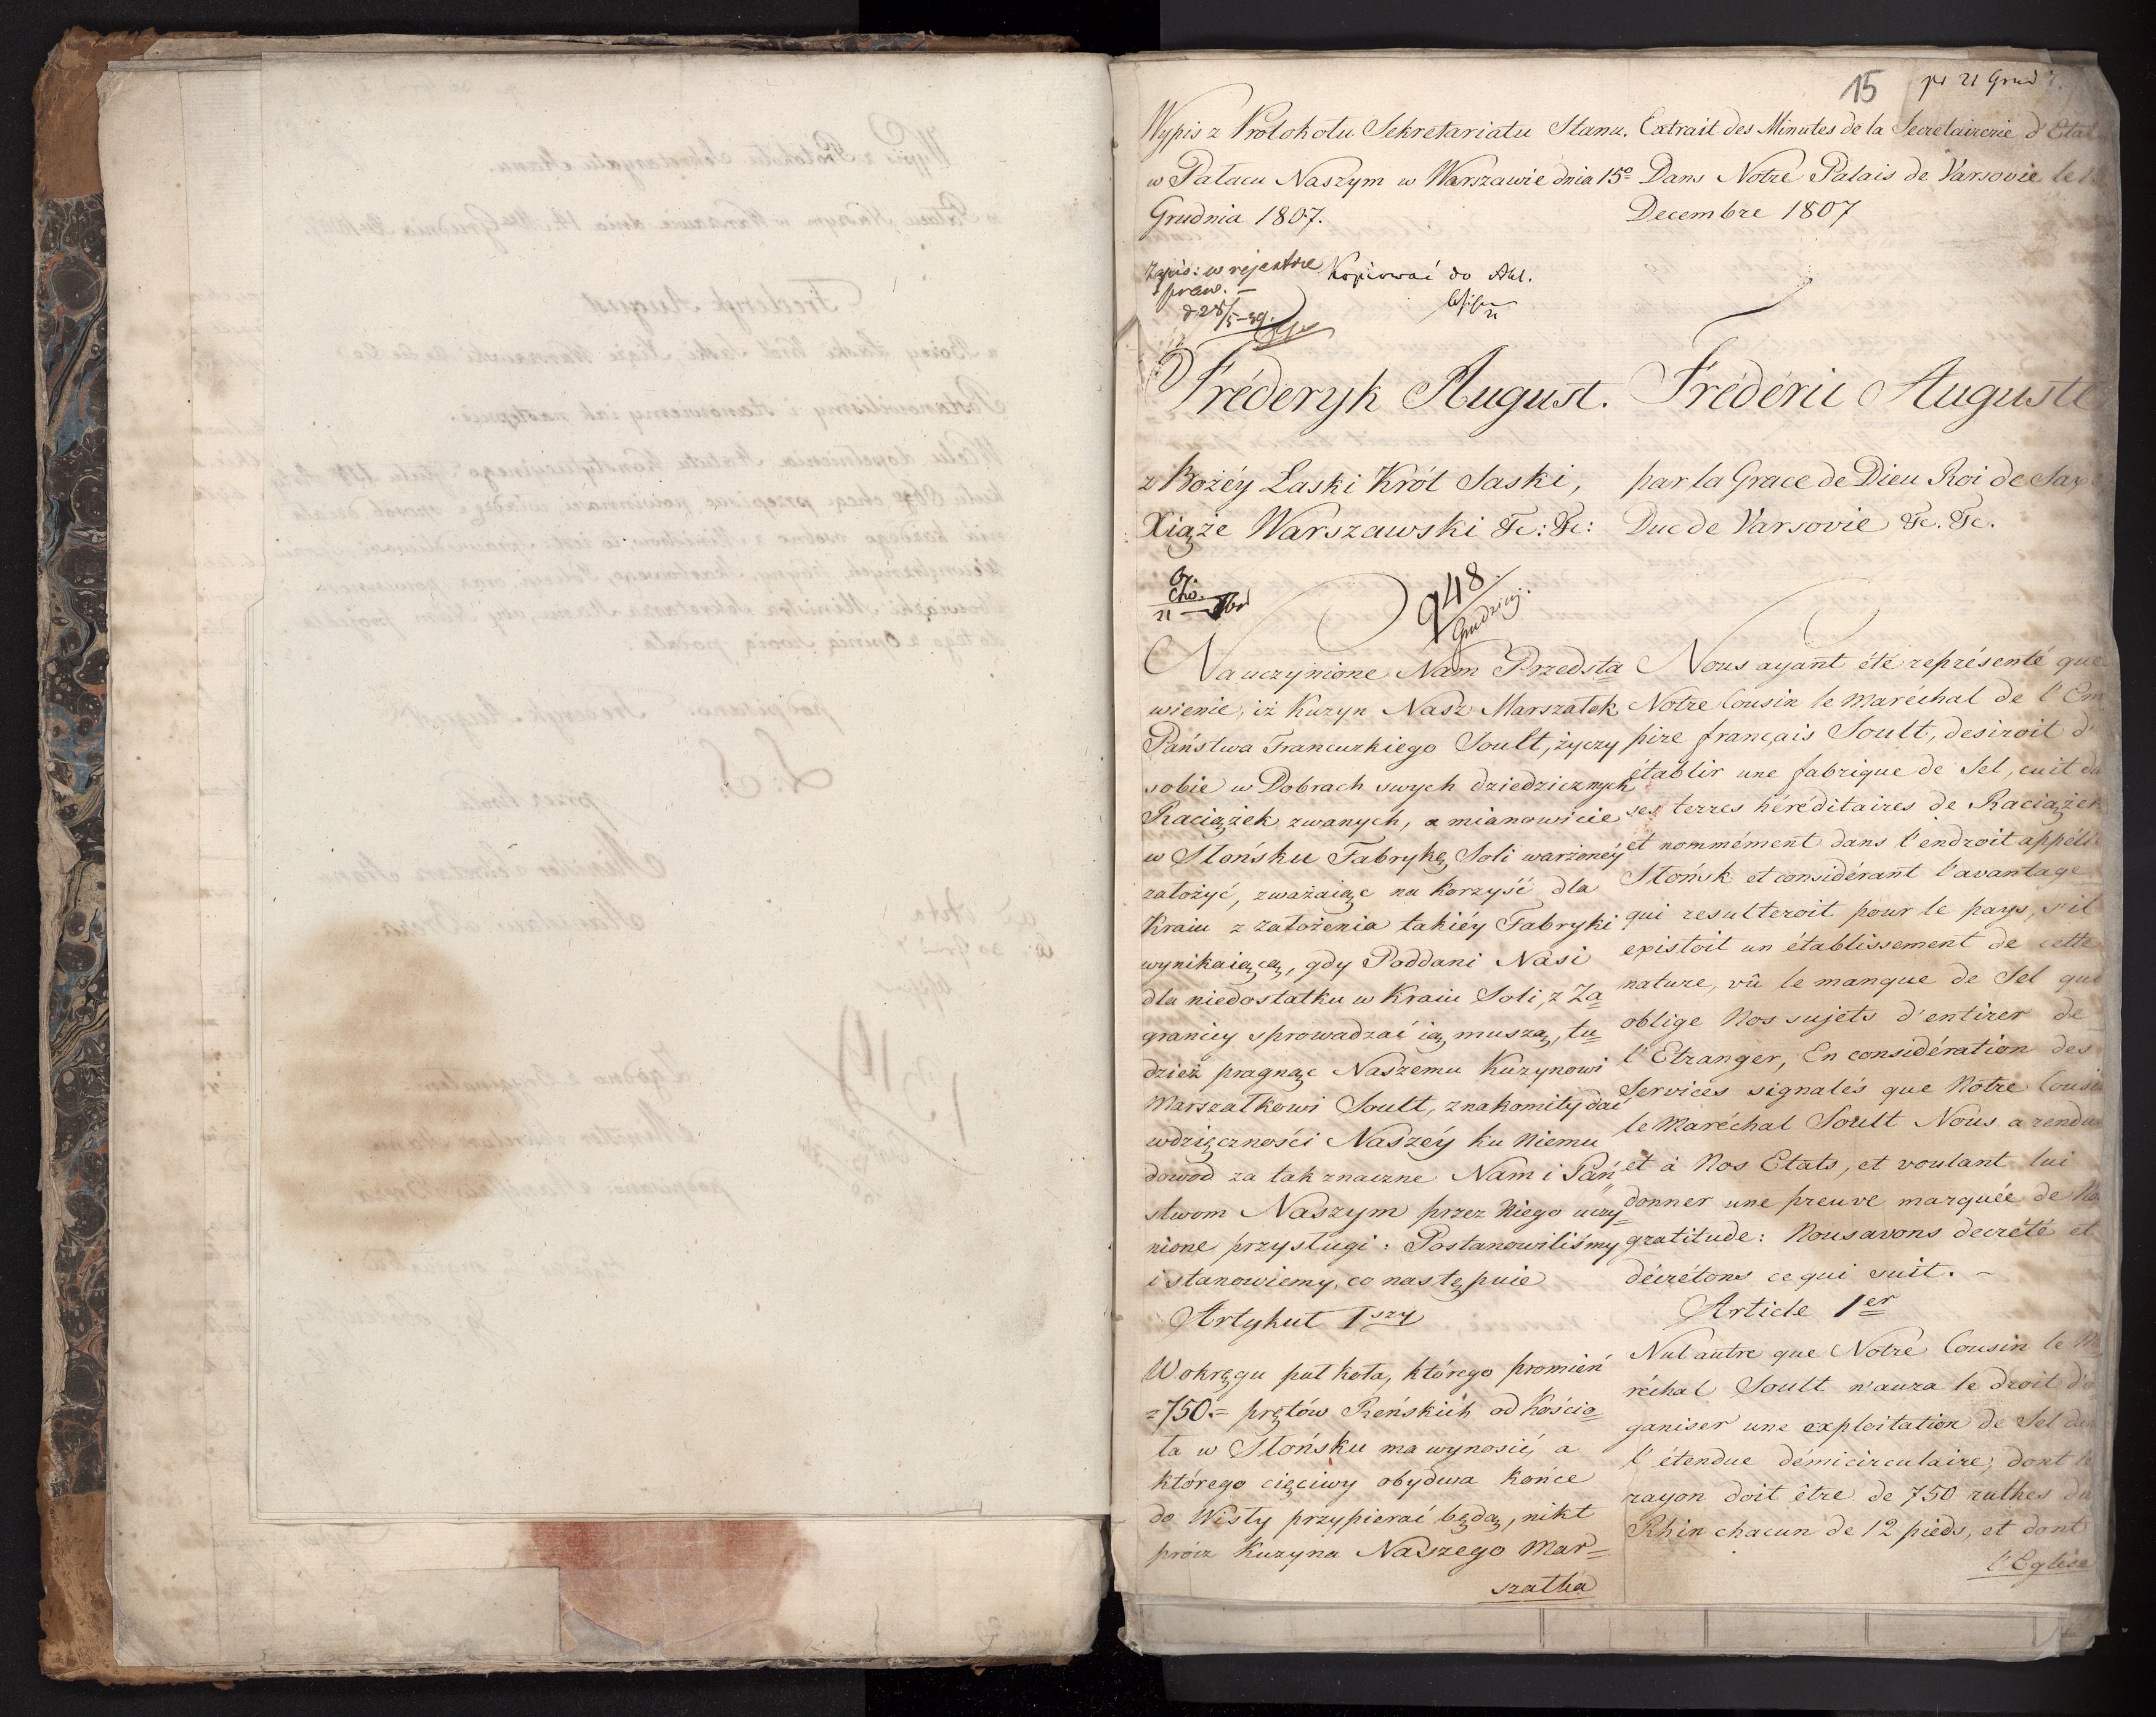 15
21 Grud
Wypis z Protokołu Sekretariatu Stanu.
w Pałacu Naszym w Warszawie dnia 15º
Grudnia 1807.
Zapis: w rejestrze
praw. –
Kopiować do Akt.
Fréderyk August.
z Bożéy Łaski Król Saski,
Xiąże Warszawski &c: &c:
948
Na uczynione Nam Przedsta=
wienie, iż Kuzyn Nasz Marszałek
Państwa Francuzkiego Soult, życzy
sobie w Dobrach swych dziedzicznych
Raciążek zwanych, a mianowicie
w Słońsku Fabrykę Soli warzonéy
założyć, zważaiąc na korzyść dla
Kraiu z założenia takiéy Fabryki
wynikaiącą, gdy Poddani Nasi
dla niedostatku w Kraiu Soli, z Za=
granicy sprowadzać ią muszą, tu=
dzież pragnąc Naszemu Kuzynowi
Marszałkowi Soult, znakomity dać
wdzięczności Naszéy ku Niemu
dowod za tak znaczne Nam i Pań=
stwom Naszym przez Niego uczy=
nione przysługi: Postanowiliśmy
i stanowiemy, co następuie
Artykuł 1szy
W okręgu puł koła, którego promień
=750.= prętów Reńskich od Kościo=
ła w Słońsku ma wynosić, a
którego cięciwy obydwa końce
do Wisły przypierać będą, nikt
prócz Kuzyna Naszego Mar=
szałka
Extrait des Minutes de la Secretairerie d'Etat
Dans Notre Palais de Varsovie le
Decembre 1807
Frédéric Auguste
par la Grace de Dieu Roi de Sax
Duc de Varsovie &c. &c.
Nous ayant été représenté que
Notre Cousin le Maréchal de l'Em
pire français Soult, desiroit d'
établir une fabrique de Sel, cuit da
ses terres héréditaires de Raciążek
et nommément dans l'endroit appélé
Słońsk et considérant l'avantage
qui resulteroit pour le pays, s'il
existoit un établissement de cette
nature, vû le manque de Sel qui
oblige Nos sujets d'entirer de
l'Etranger, En considération des
Services signalés que Notre Cousin
le Maréchal Soult Nous a rendus
et à Nos Etats, et voulant lui
donner une preuve marquée de No
gratitude: Nous avons decrété et
décrétons ce qui suit. –
Article 1er
Nul autre que Notre Cousin le Ma
réchal Soult n'aura le droit d'o
ganiser une exploitation de Sel dan
l'étendue démicirculaire, dont le
rayon doit être de 750 ruthes du
Rhin chacun de 12 pieds, et dont
l'Eglise